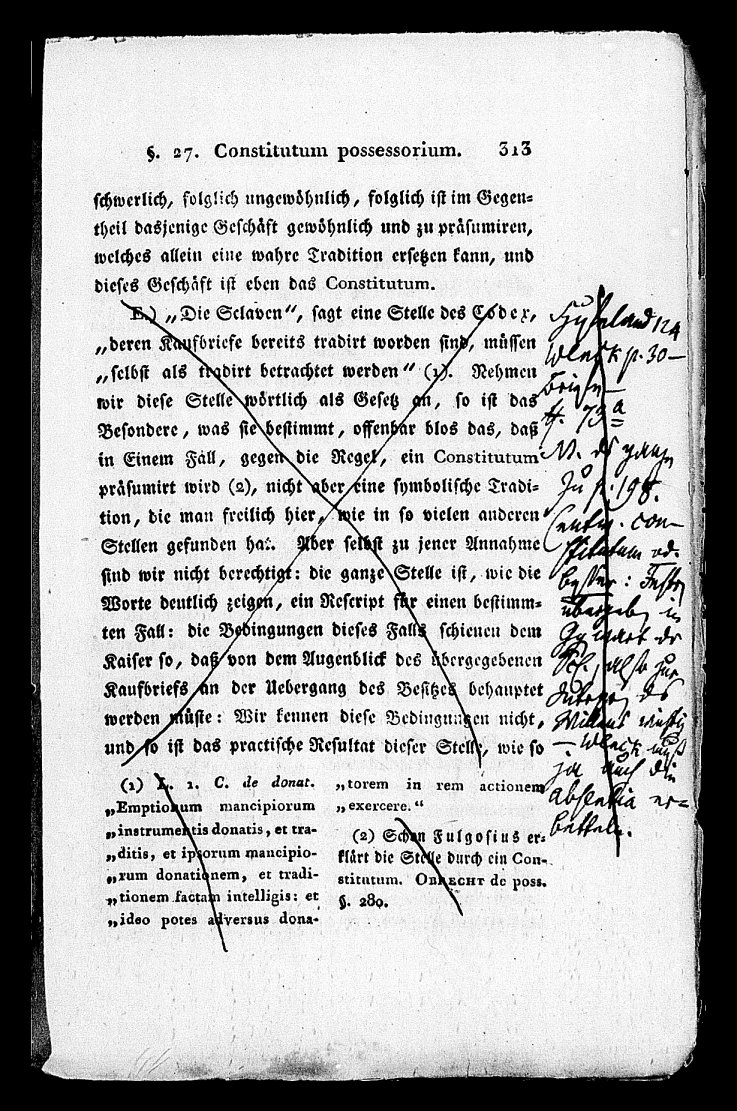 §. 27. Constitutum possessorium. 313
schwerlich, folglich ungewöhnlich, folglich ist im Gegen=
theil dasjenige Geschäft gewöhnlich und zu präsumiren,
welches allein eine wahre Tradition ersetzen kann, und
dieses Geschäft ist eben das Constitutum.
E.) „Die Sclaven“, sagt eine Stelle des Codex,
„deren Kaufbriefe bereits tradirt worden sind, müssen
„selbst als tradirt betrachtet werden“ (1). Nehmen
wir diese Stelle wörtlich als Gesetz an, so ist das
Besondere, was sie bestimmt, offenbar blos das, daß
in Einem Fall, gegen die Regel, ein Constitutum
präsumirt wird (2), nicht aber eine symbolische Tradi=
tion, die man freilich hier, wie in so vielen anderen
Stellen gefunden hat. Aber selbst zu jener Annahme
sind wir nicht berechtigt: die ganze Stelle ist, wie die
Worte deutlich zeigen, ein Rescript für einen bestimm=
ten Fall: die Bedingungen dieses Falls schienen dem
Kaiser so, daß von dem Augenblick des übergegebenen
Kaufbriefs an der Uebergang des Besitzes behauptet
werden müste: Wir kennen diese Bedingungen nicht,
und so ist das practische Resultat dieser Stelle, wie so
(1) L. 1. C. de donat.
„Emptionum mancipiorum
„instrumentis donatis, et tra-
„ditis, et ipsorum mancipio-
„rum donationem, et tradi-
„tionem factam intelligis: et
„ideo potes adversus dona-
„torem in rem actionem
„exercere.“
(2) Schon Fulgosius er=
klärt die Stelle durch ein Con-
stitutum. OBRECHT de poss.
§. 280.
Hufeland 124
p. 30—
73a
N. das ganze
zu p. 198.
con-
stitutum od.
besser:
übergeben in
als zur
des
Willens
—
ja auch die
absentia er=